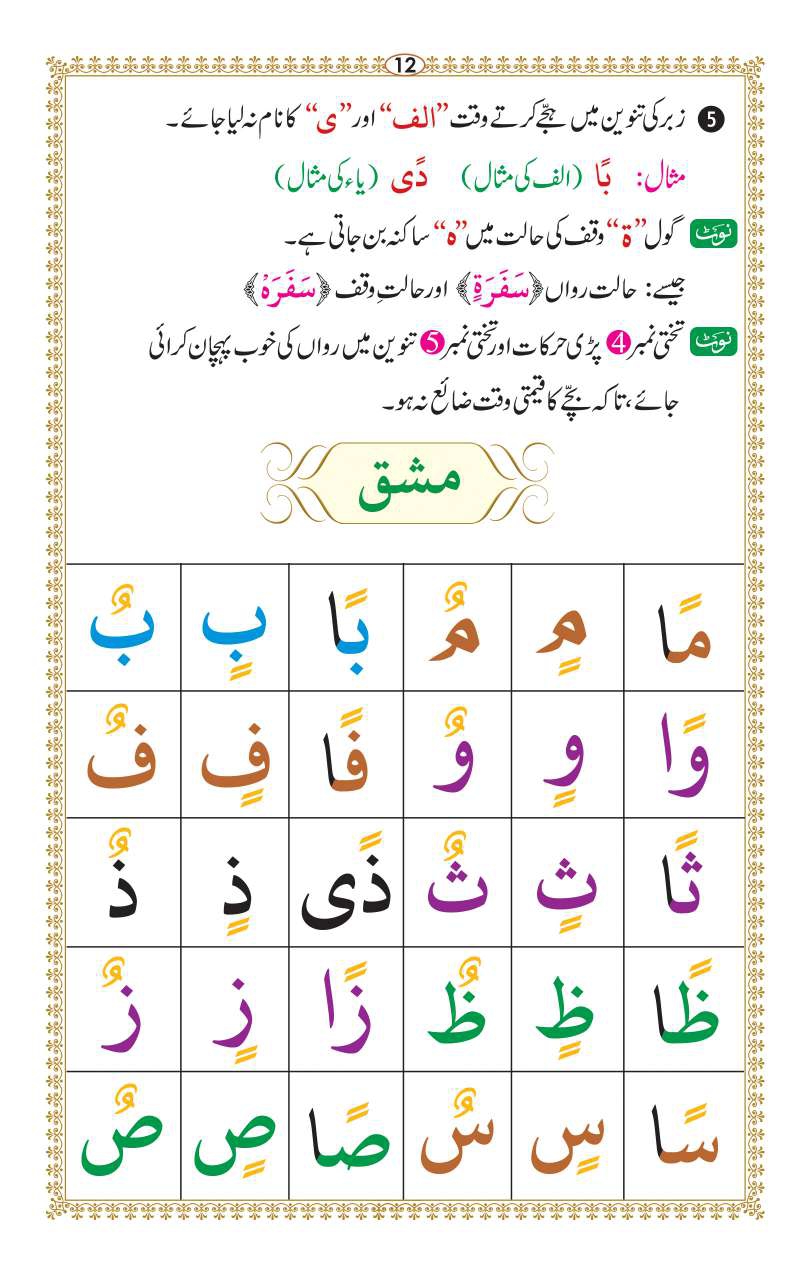 12
5 زبر کی تنوین میں ہجّے کرتے وقت ”الف“ اور ”ی“ کا نام نہ لیا جائے۔
مثال: بًا (الف کی مثال) ذًی (یاء کی مثال)
نوٹ گول ”ة“ وقف کی حالت میں ”ہ“ ساکنہ بن جاتی ہے۔
جیسے: حالت رواں ﴿سَفَرَةٍ﴾ اور حالتِ وقف ﴿سَفَرَہْ﴾
نوٹ تختی نمبر 4 پڑی حرکات اور تختی نمبر 5 تنوین میں رواں کی خوب پہچان کرائی
جائے، تاکہ بچّے کا قیمتی وقت ضائع نہ ہو۔
مشق
مًا مٍ مٌ بًا بٍ بٌ
وًا وٍ وٌ فًا فٍ فٌ
ثًا ثٍ ثٌ ذًی ذٍ ذٌ
ظًا ظٍ ظٌ زًا زٍ زٌ
سًا سٍ سٌ صًا صٍ صٌ